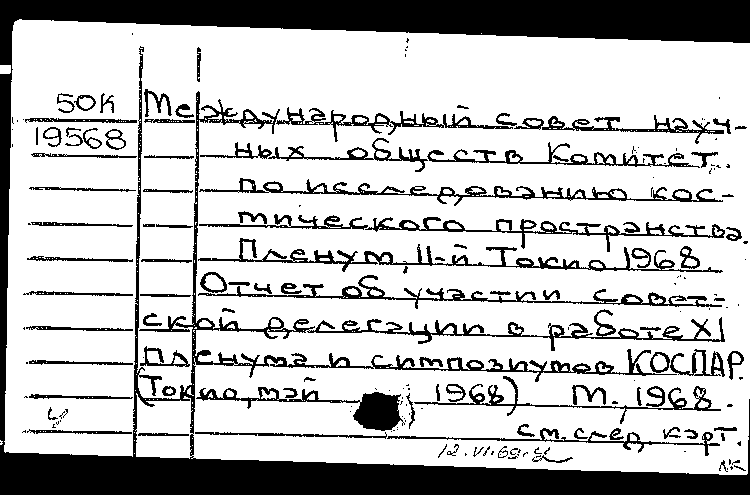 50К Международный совет науч-
19568 ных обществ Комитет.
по исследованию кос-
мического пространства.
Пленум, II-й. Токио. 1968.
Отчет об участии совет-
ской делегации в работе XI
пленума и симпозиумов КОСПАР.
(Токио, май 1968). М., 1968.
см. след. карт.
12.VI.69.